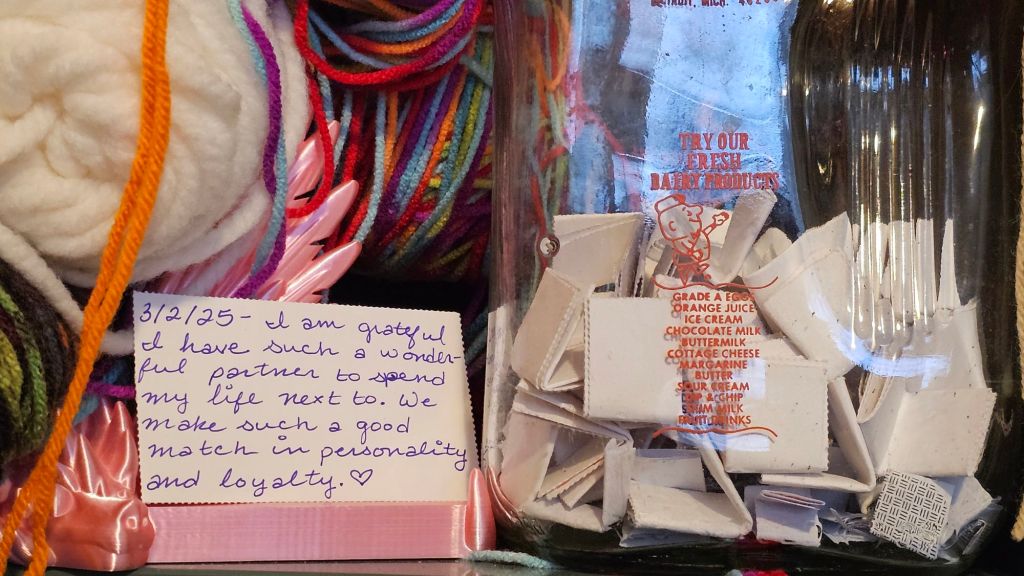 3/2/25 - I am grateful
I have such a wonder-
ful partner to spend
my life next to. We
make such a good
match in personality
and loyalty. ♡
DETROIT, MICH.
TRY OUR
FRESH
DAIRY PRODUCTS
GRADE A EGGS
ORANGE JUICE
ICE CREAM
CHOCOLATE MILK
BUTTERMILK
COTTAGE CHEESE
MARGARINE
BUTTER
SOUR CREAM
DIP & CHIP
SKIM MILK
FRUIT DRINKS